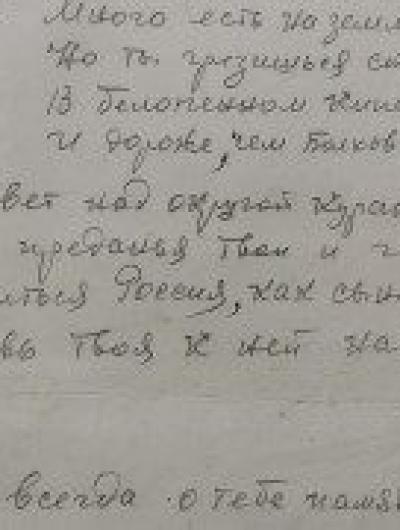 Много есть на земл
Но ты грезишься с
В белопенном кип
И дороже, чем
вет над округой
преданья твои и
иться Россия, как сын
вь твоя к ней на
всегда о тебе памя